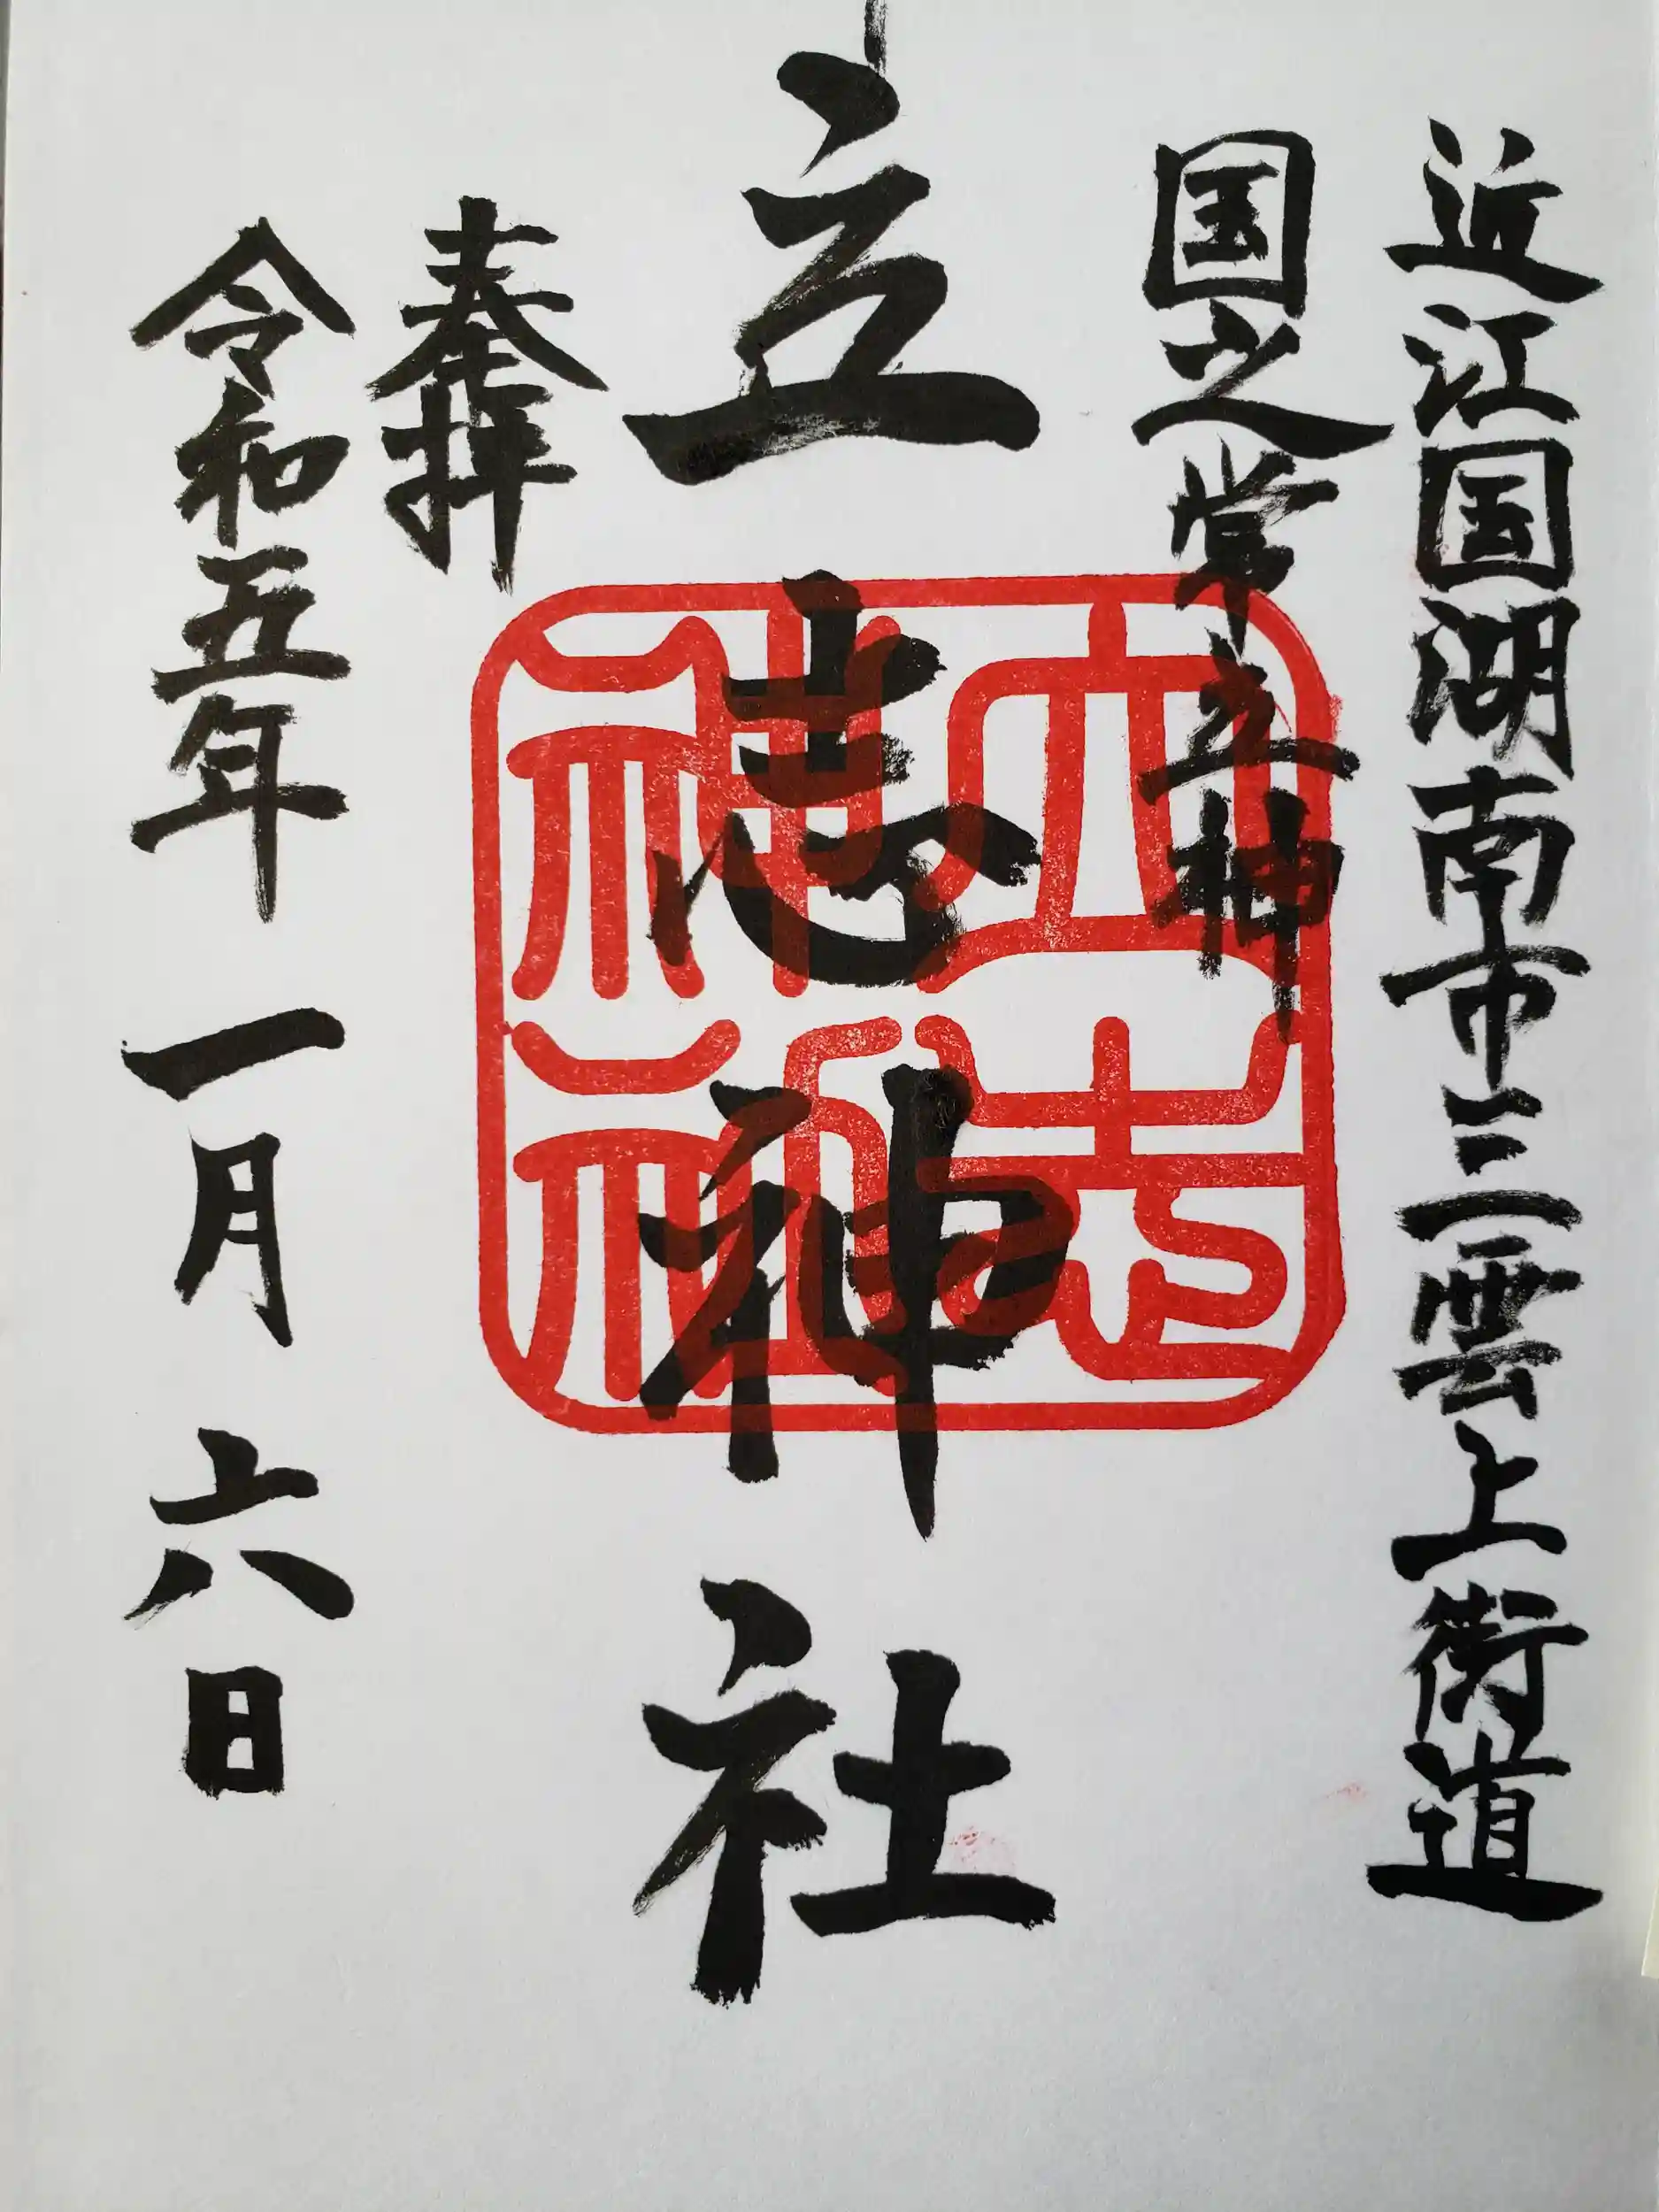 近江国湖南市三雲上街道
国之常立神
立志神社
奉拝
令和五年一月六日
立志神社